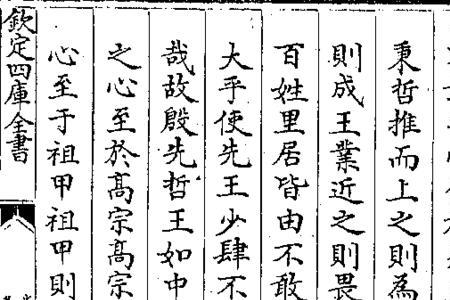 秉哲推而上之則為
則成王業近之則畏
百姓里居皆由不敢
大乎使先王少肆不
哉故殷先哲王如中
之心至於髙宗髙宗
心至于祖甲祖甲則
欽定四庫全書